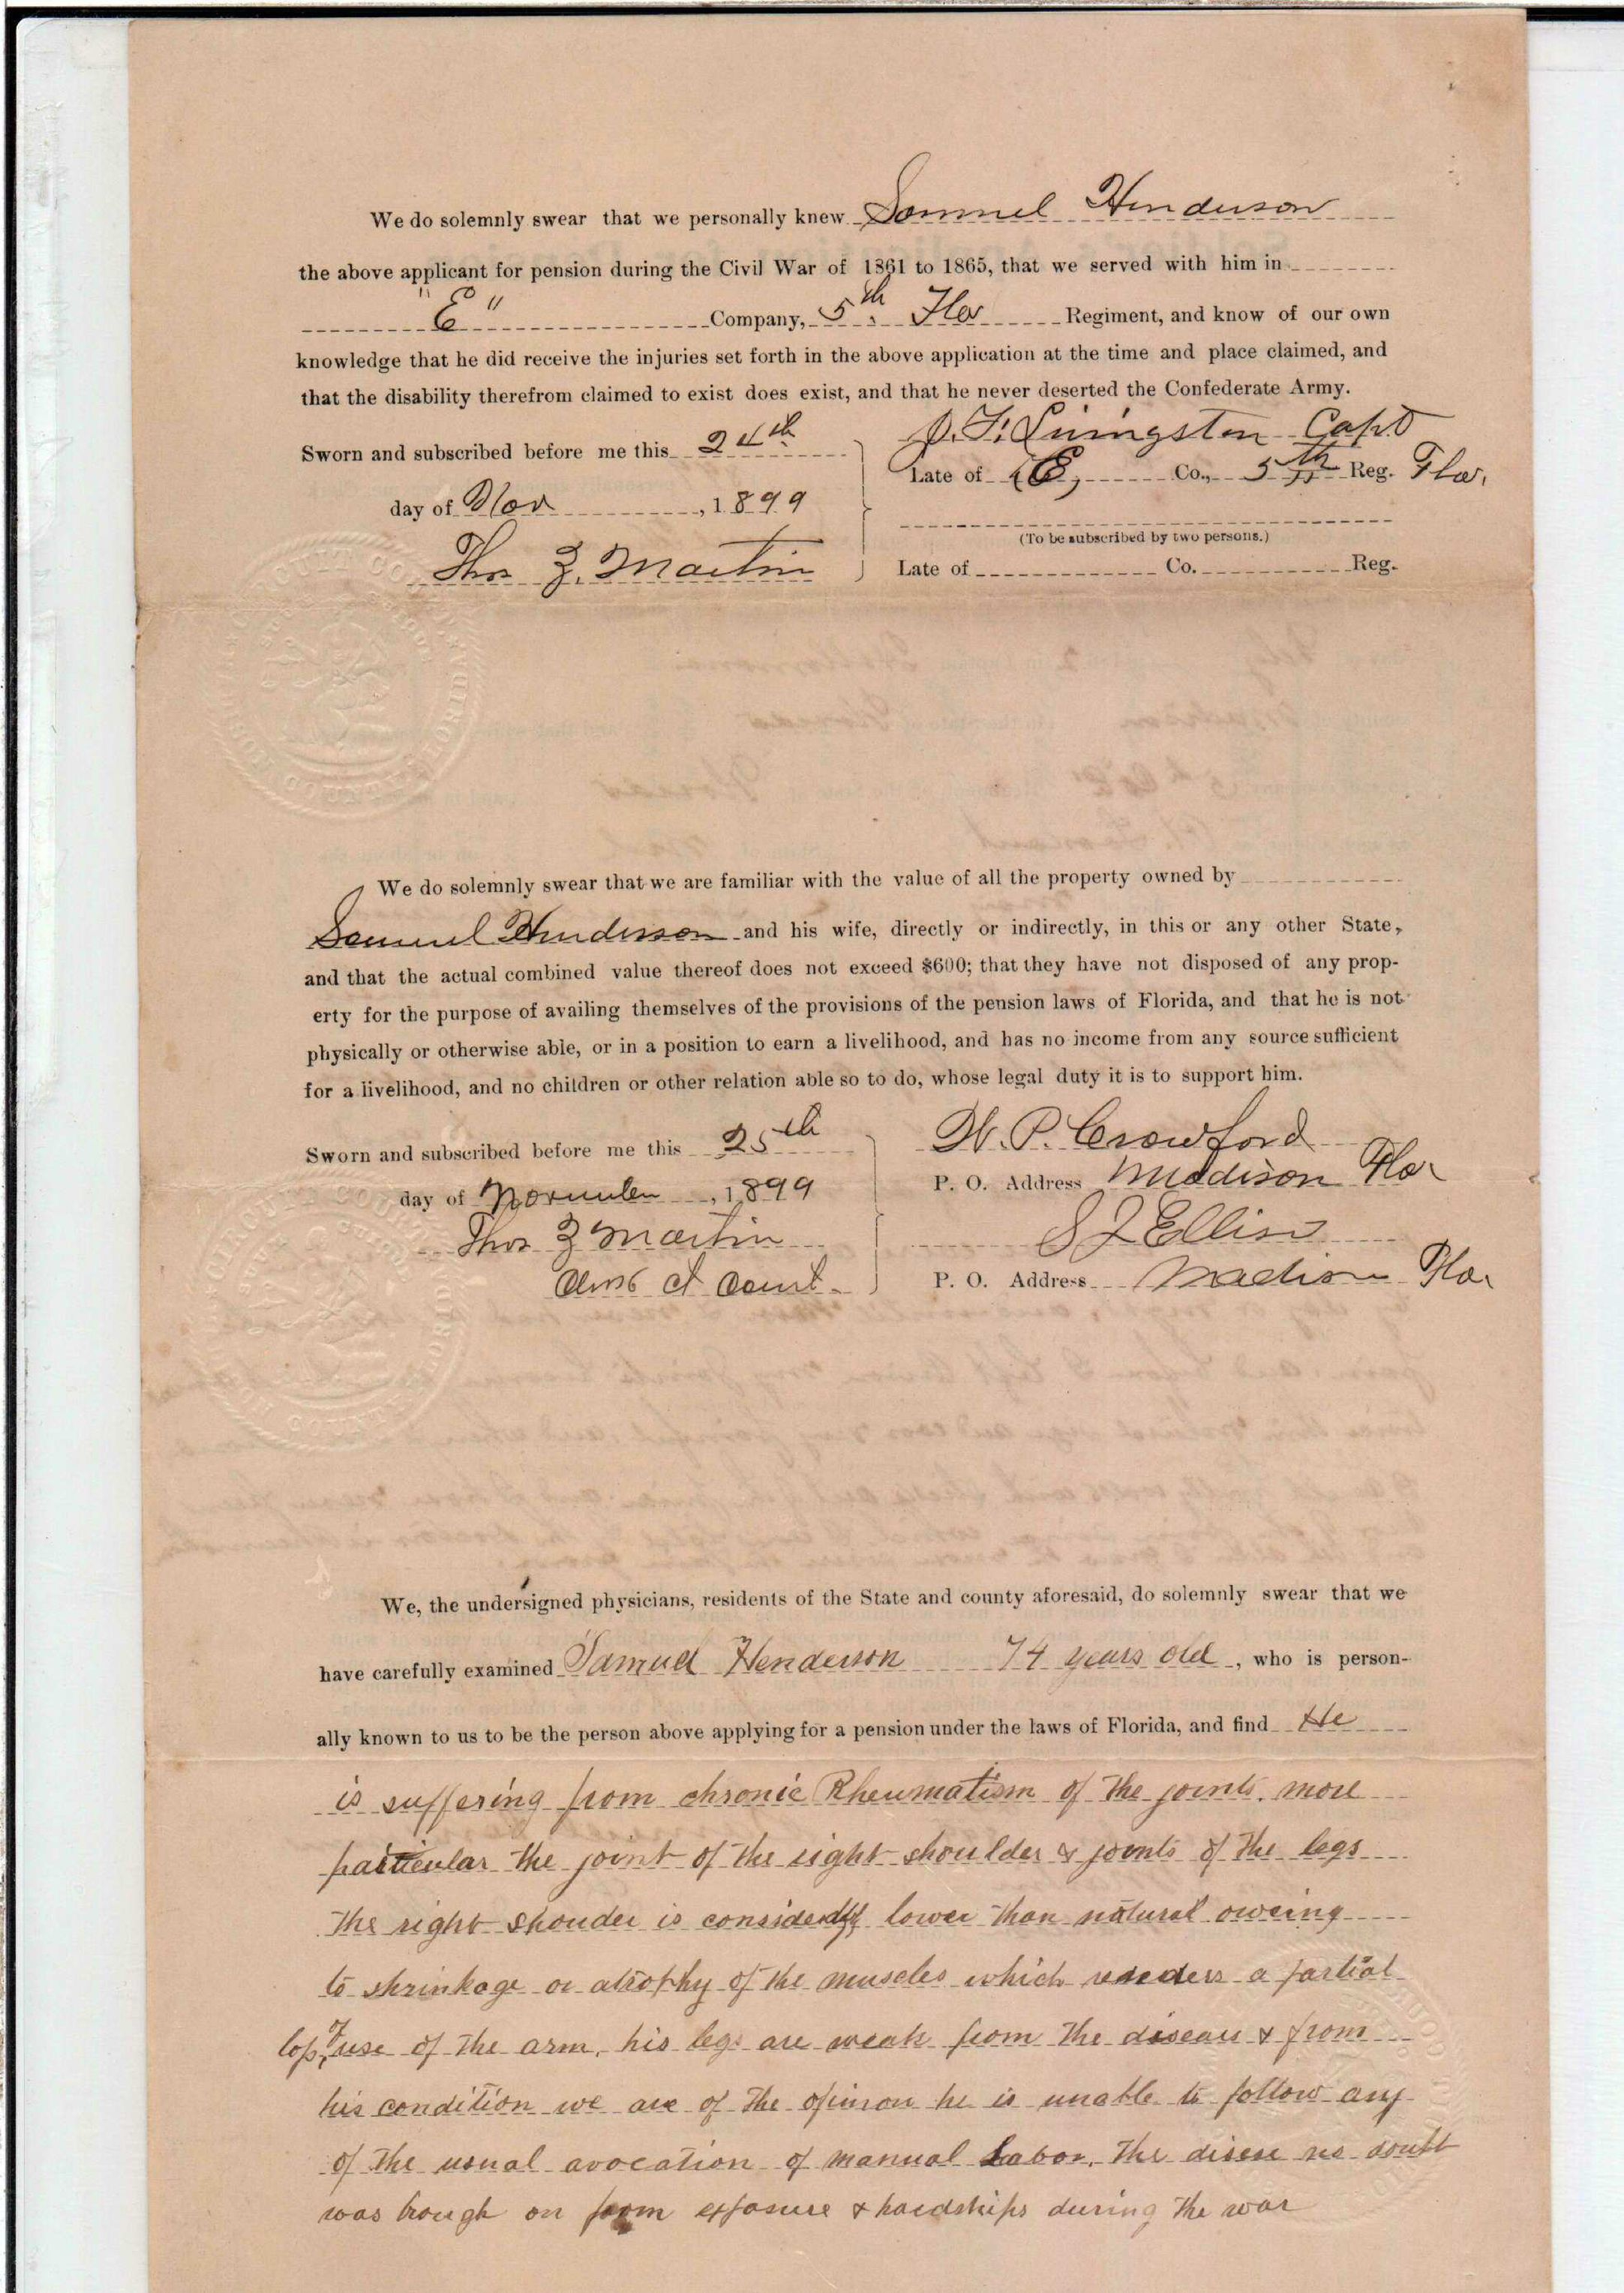 We do solemnly swear that we personally knew Samuel Henderson
the above applicant for pension during the Civil War of 1861 to 1865, that we served with him in
"E" Company, 5th Fla Regiment, and know of our own
knowledge that he did receive the injuries set forth in the above application at the time and place claimed, and
that the disability therefrom claimed to exist does exist, and that he never deserted the Confederate Army.
Sworn and subscribed before me this 24th
day of Nov, 1899
Thos Z. Martin
J. F. Livingston Capt
Late of "E" Co., 5th Reg. Fla.
(To be subscribed by two persons.)
Late of Co. Reg.
We do solemnly swear that we are familiar with the value of all the property owned by
Samuel Henderson and his wife, directly or indirectly, in this or any other State,
and that the actual combined value thereof does not exceed $600; that they have not disposed of any prop-
erty for the purpose of availing themselves of the provisions of the pension laws of Florida, and that he is not
physically or otherwise able, or in a position to earn a livelihood, and has no income from any source sufficient
for a livelihood, and no children or other relation able so to do, whose legal duty it is to support him.
Sworn and subscribed before me this 25th
day of November, 1899
Thos Z Martin
Clerk Ct Court
W. P. Crawford
P. O. Address Madison Fla
S J Ellison
P. O. Address Madison Fla
We, the undersigned physicians, residents of the State and county aforesaid, do solemnly swear that we
have carefully examined Samuel Henderson 74 years old, who is person-
ally known to us to be the person above applying for a pension under the laws of Florida, and find He
is suffering from chronic Rheumatism of the joints. more
particular the joint of the right shoulder & joints of the legs
The right shouder is considerdly lower than natural oweing
to shrinkage or atrophy of the muscles which renders a partial
loss of use of the arm, his legs are weak from the diseas & from
his condition we are of the opinion he is unable to follow any
of the usual avocation of manual Labor. The disese no doubt
was brough on from exposure & hardships during the war